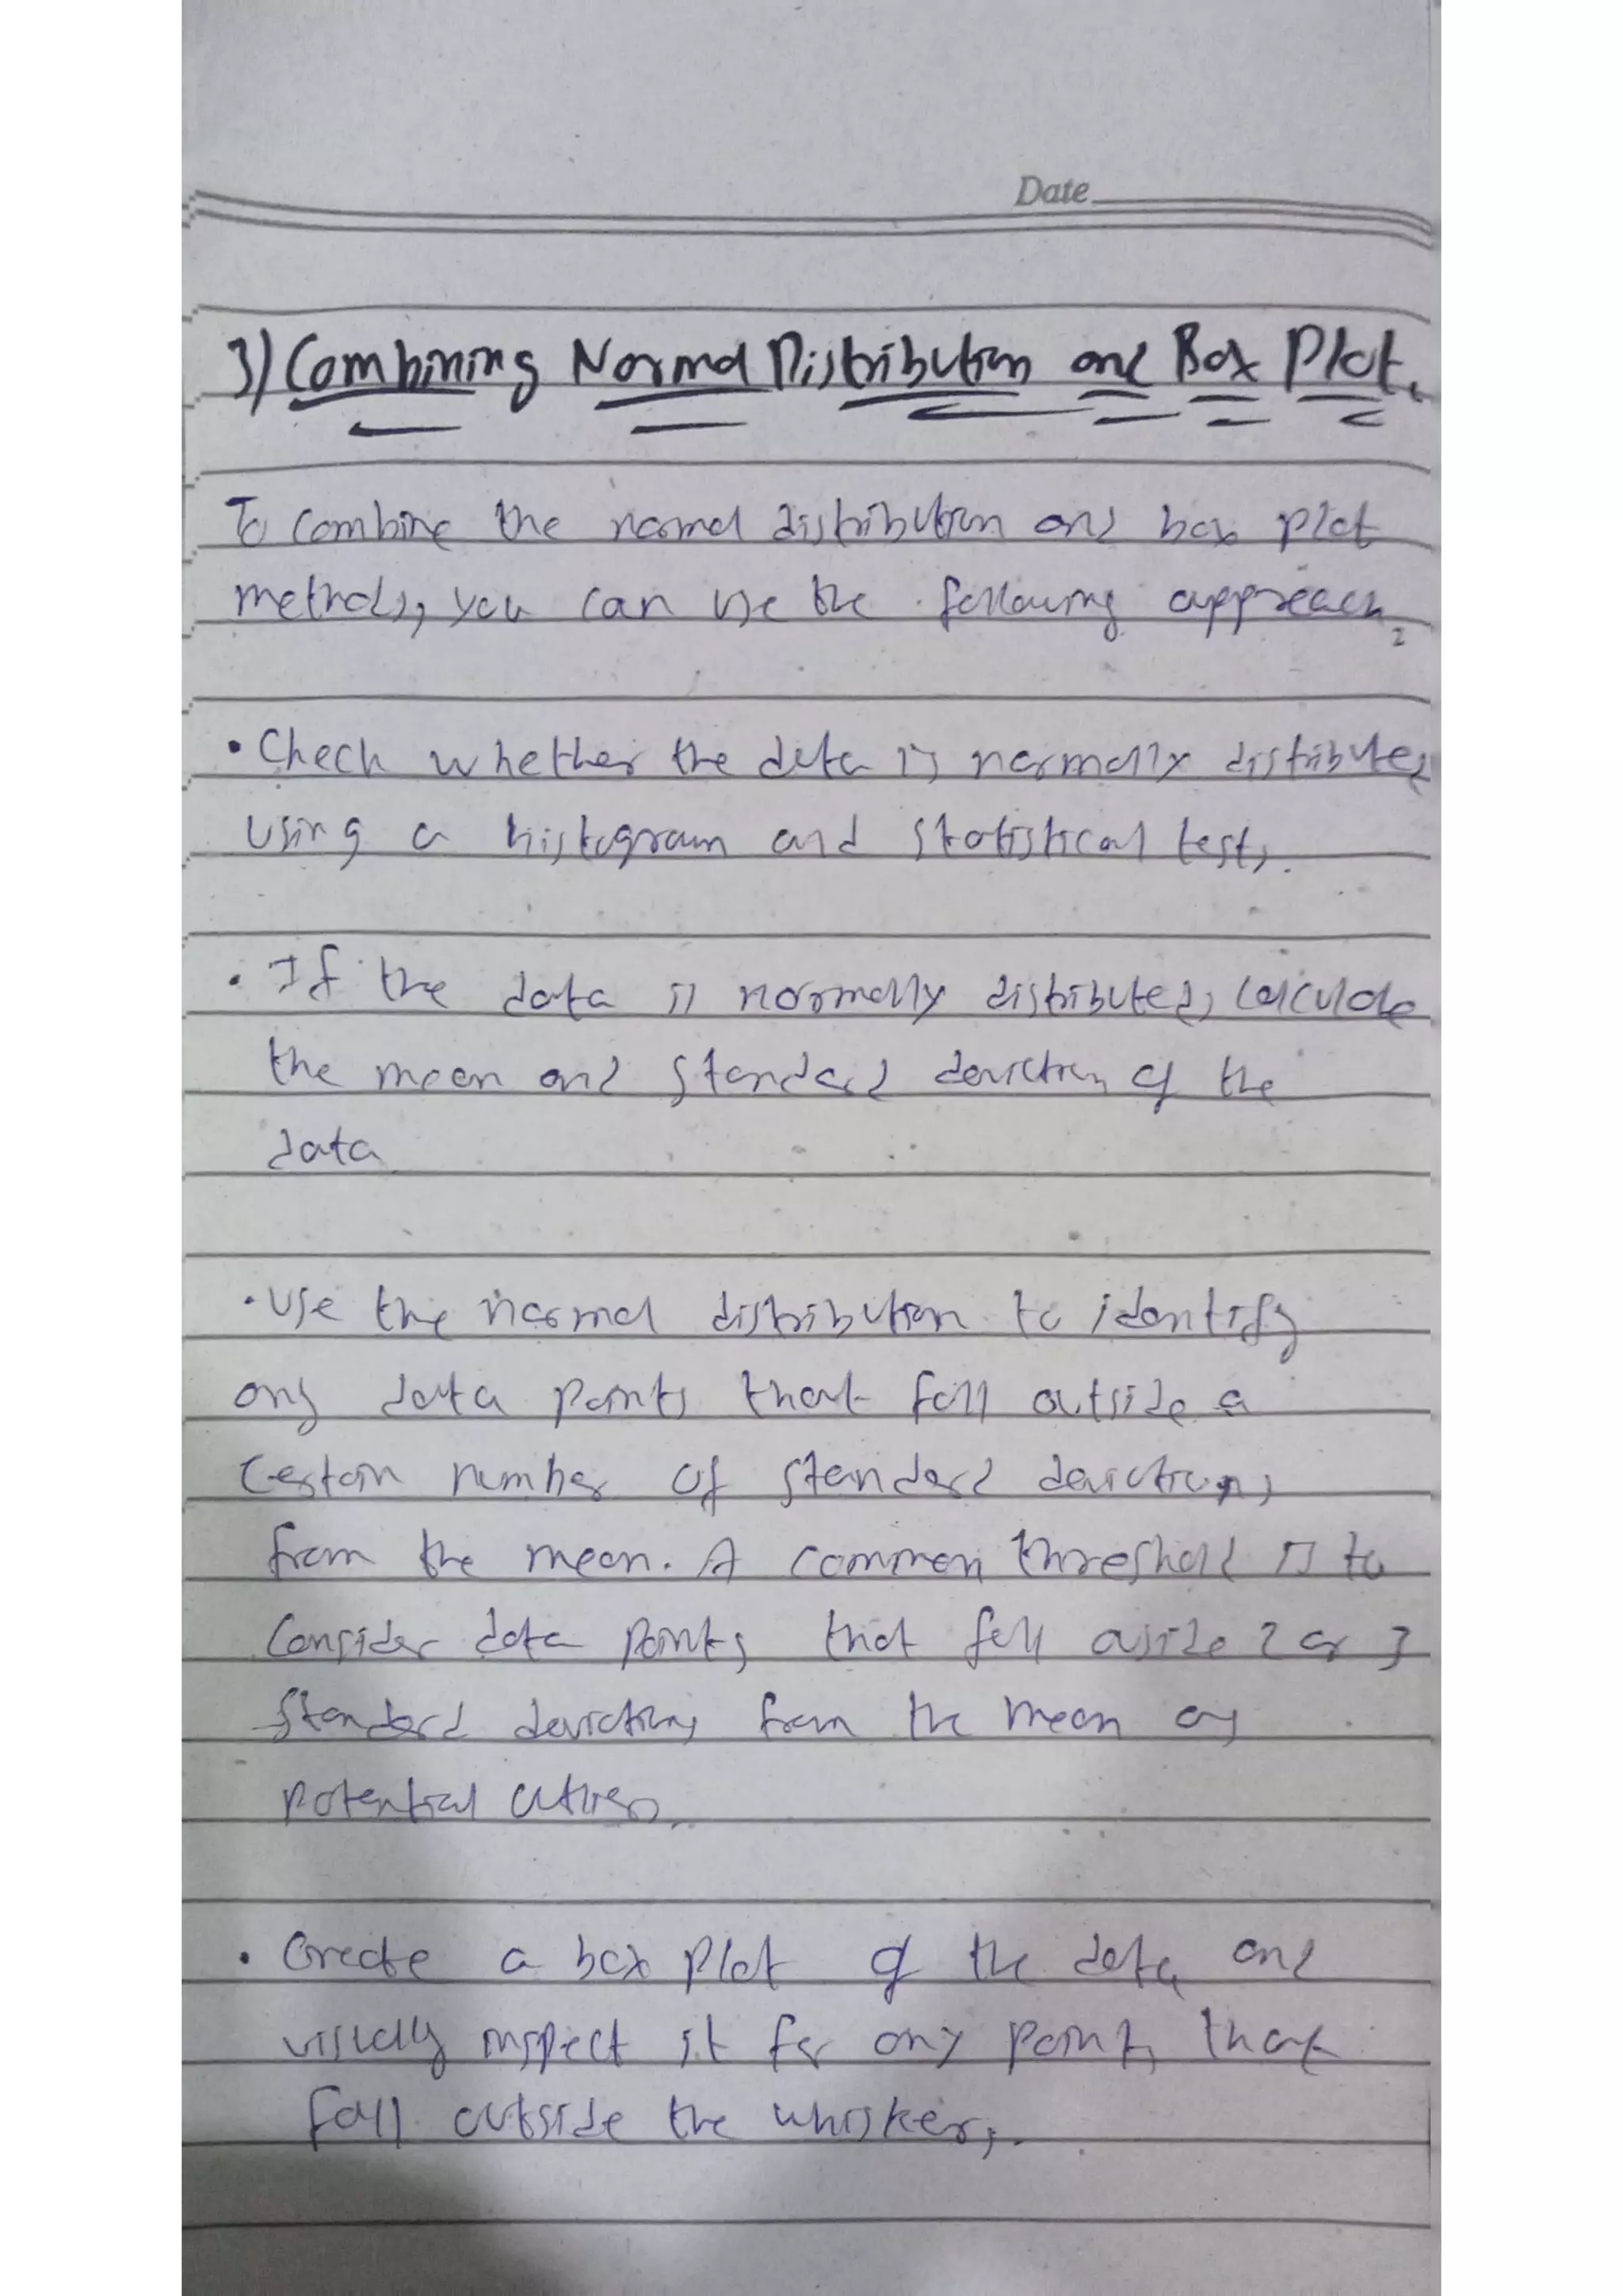 Date
3) Combining Normal Distribution and Box Plot.
To Combine the normal distribution and box plot
methods, you can use the following approach:
• Check whether the data is normally distributed
using a histogram and statistical tests.
• If the data is normally distributed, calculate
the mean and standard deviation of the
data
• Use the normal distribution to identify
any data points that fall outside a
certain number of standard deviations
from the mean. A common threshold is to
Consider data points that fall outside 2 or 3
standard deviations from the mean as
potential outliers.
• Create a box plot of the data and
visually inspect it for any points that
fall outside the whiskers.